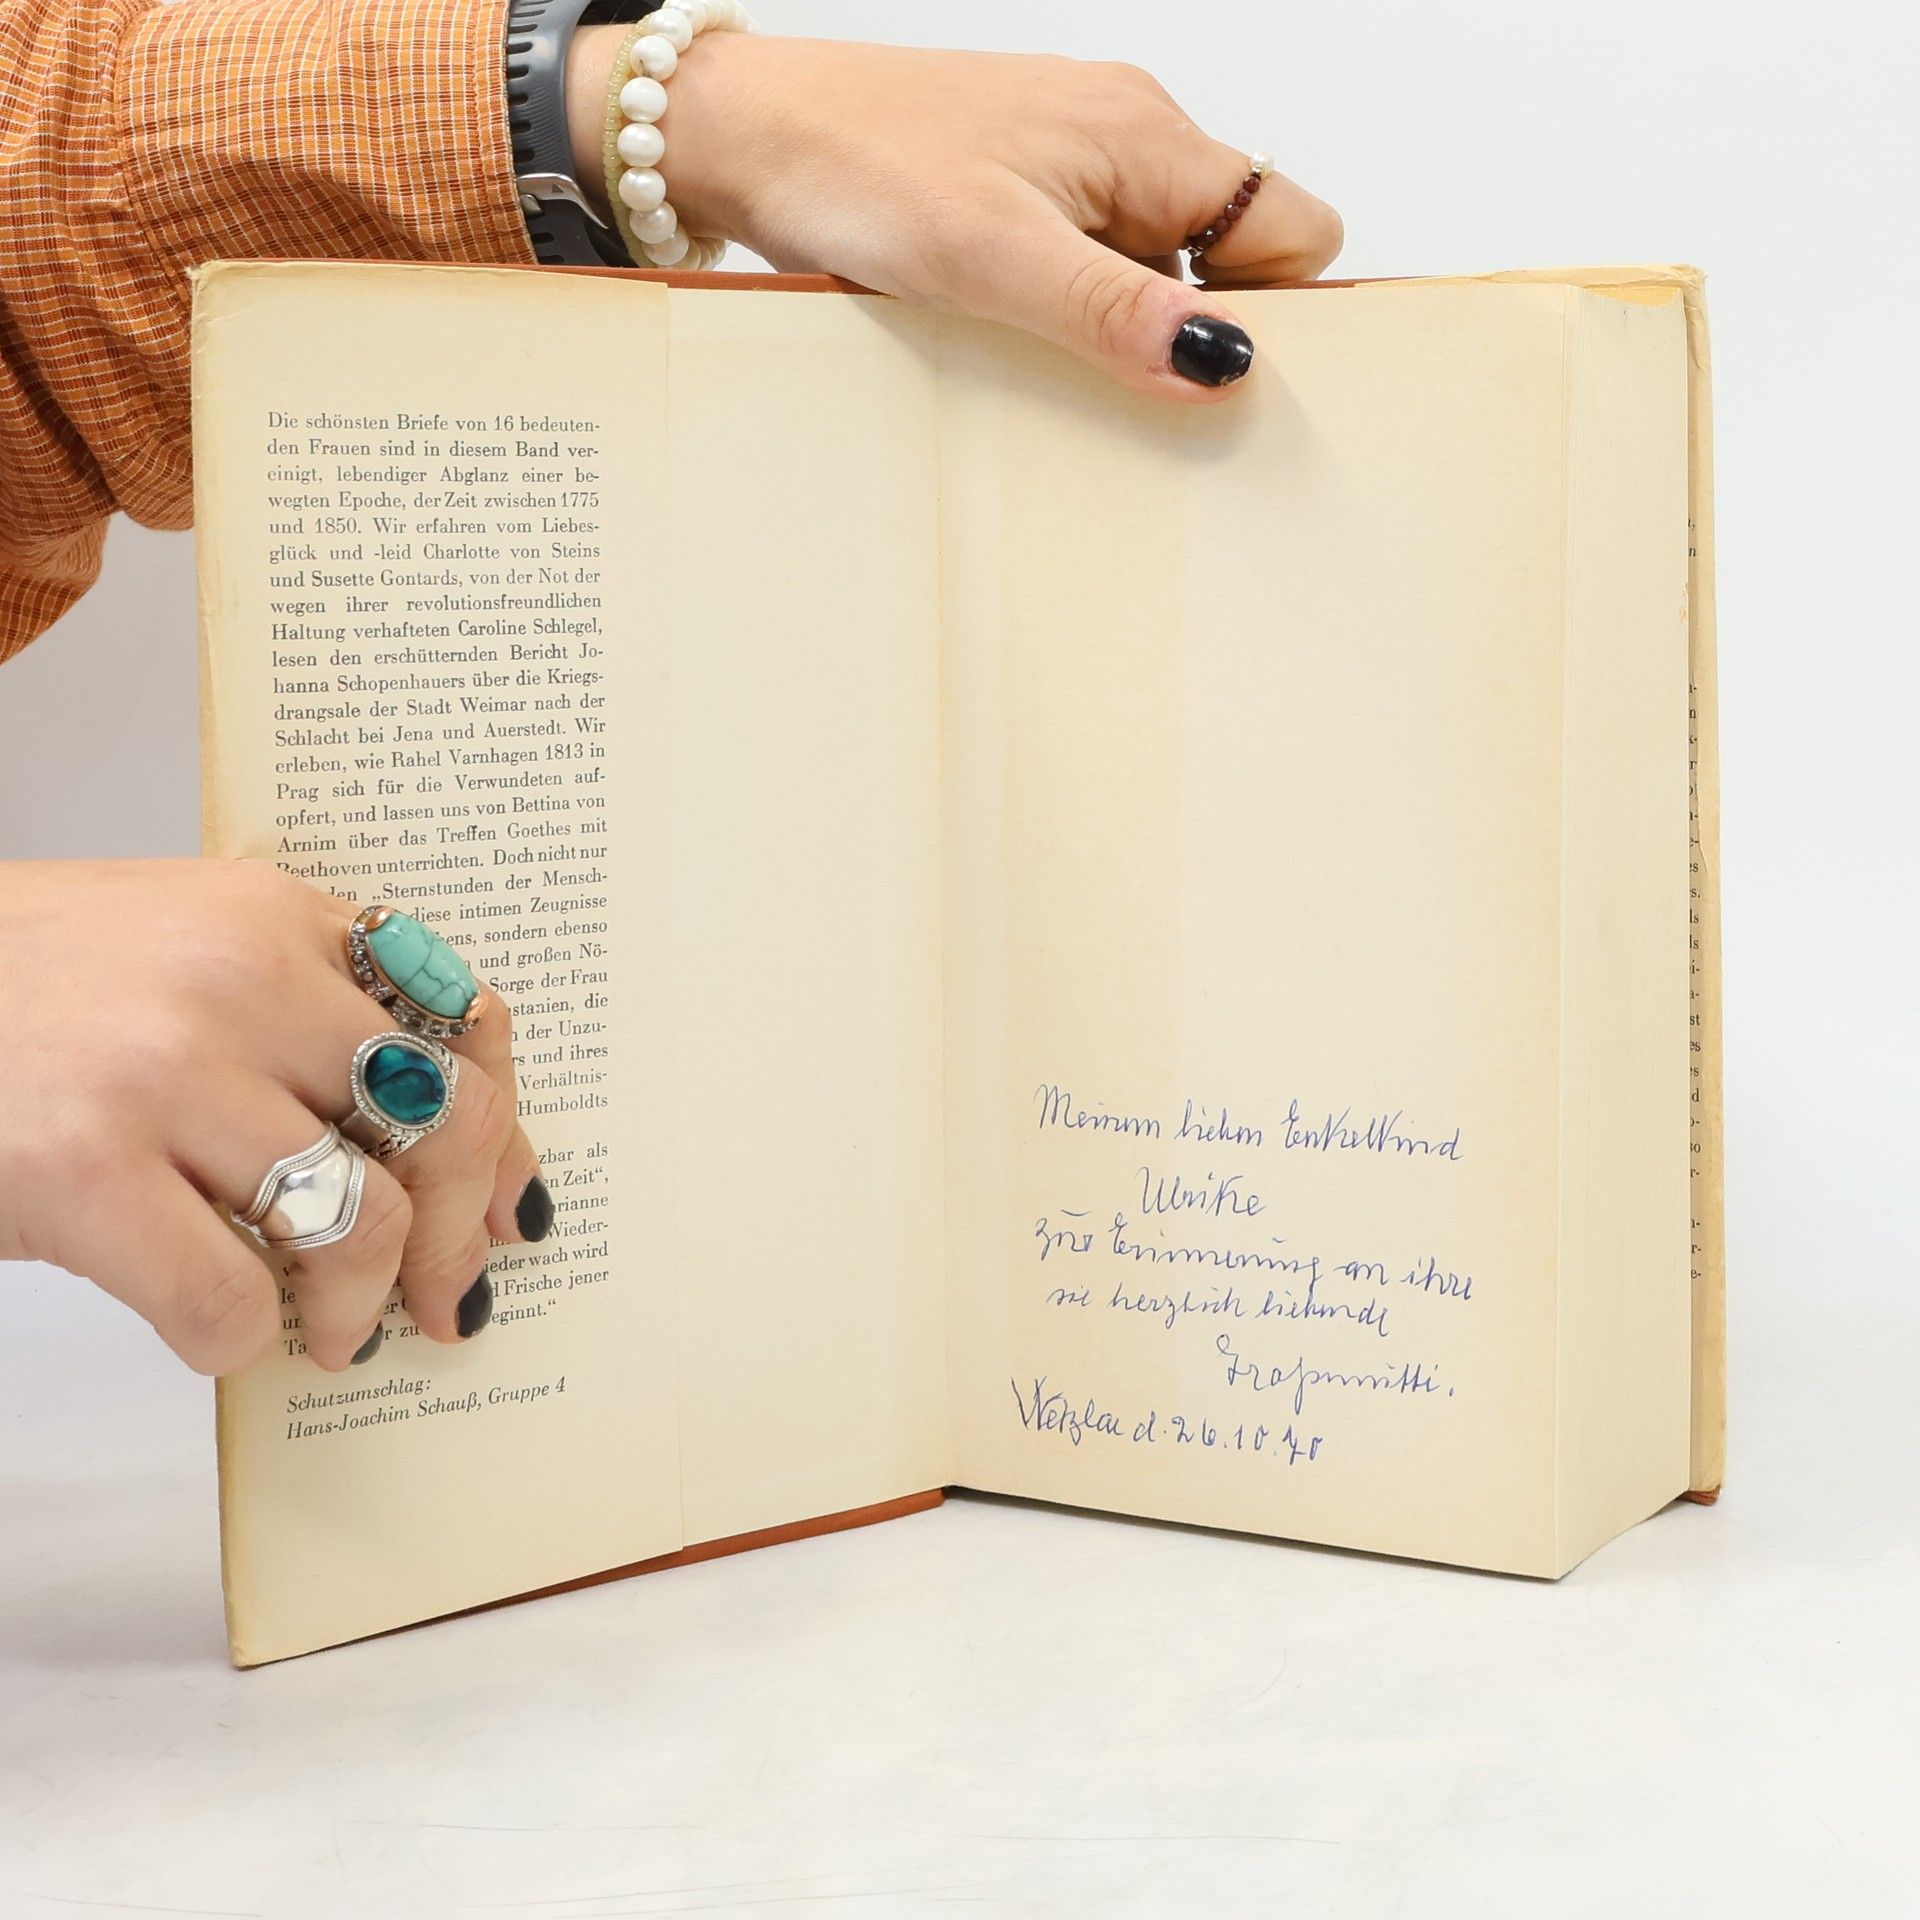 Die schönsten Briefe von 16 bedeuten-
den Frauen sind in diesem Band ver-
einigt, lebendiger Abglanz einer be-
wegten Epoche, der Zeit zwischen 1775
und 1850. Wir erfahren vom Liebes-
glück und -leid Charlotte von Steins
und Susette Gontards, von der Not der
wegen ihrer revolutionsfreundlichen
Haltung verhafteten Caroline Schlegel,
lesen den erschütternden Bericht Jo-
hanna Schopenhauers über die Kriegs-
drangsale der Stadt Weimar nach der
Schlacht bei Jena und Auerstedt. Wir
erleben, wie Rahel Varnhagen 1813 in
Prag sich für die Verwundeten auf-
opfert, und lassen uns von Bettina von
Arnim über das Treffen Goethes mit
Beethoven unterrichten. Doch nicht nur
„Sternstunden der Mensch-
diese intimen Zeugnisse
sondern ebenso
und großen Nö-
Sorge der Frau
die
der Unzu-
und ihres
Verhältnis-
Humboldts
als
Zeit“,
Wieder-
wach wird
Frische jener
zu
Schutzumschlag:
Hans-Joachim Schauß, Gruppe 4
Meinem lieben Enkelkind
Ulrike
zur Erinnerung an ihre
sie herzlich liebende
Großmutti.
Wetzlar d. 26.10.70